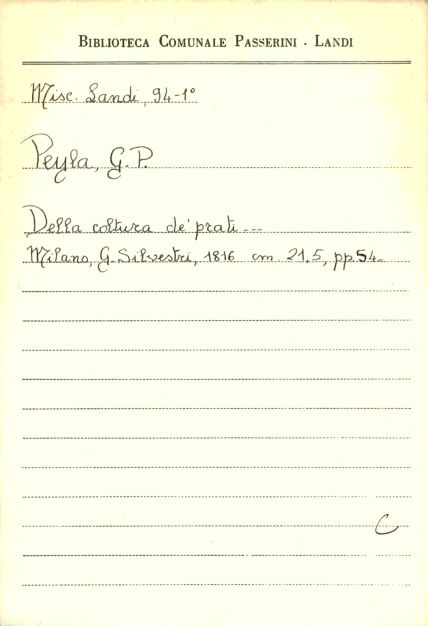 BIBLIOTECA COMUNALE PASSERINI - LANDI
Misc. Landi, 94-1°
Peyla, G. P.
Della coltura de' prati ...
Milano, G. Silvestri, 1816 cm 21,5, pp. 54.
C